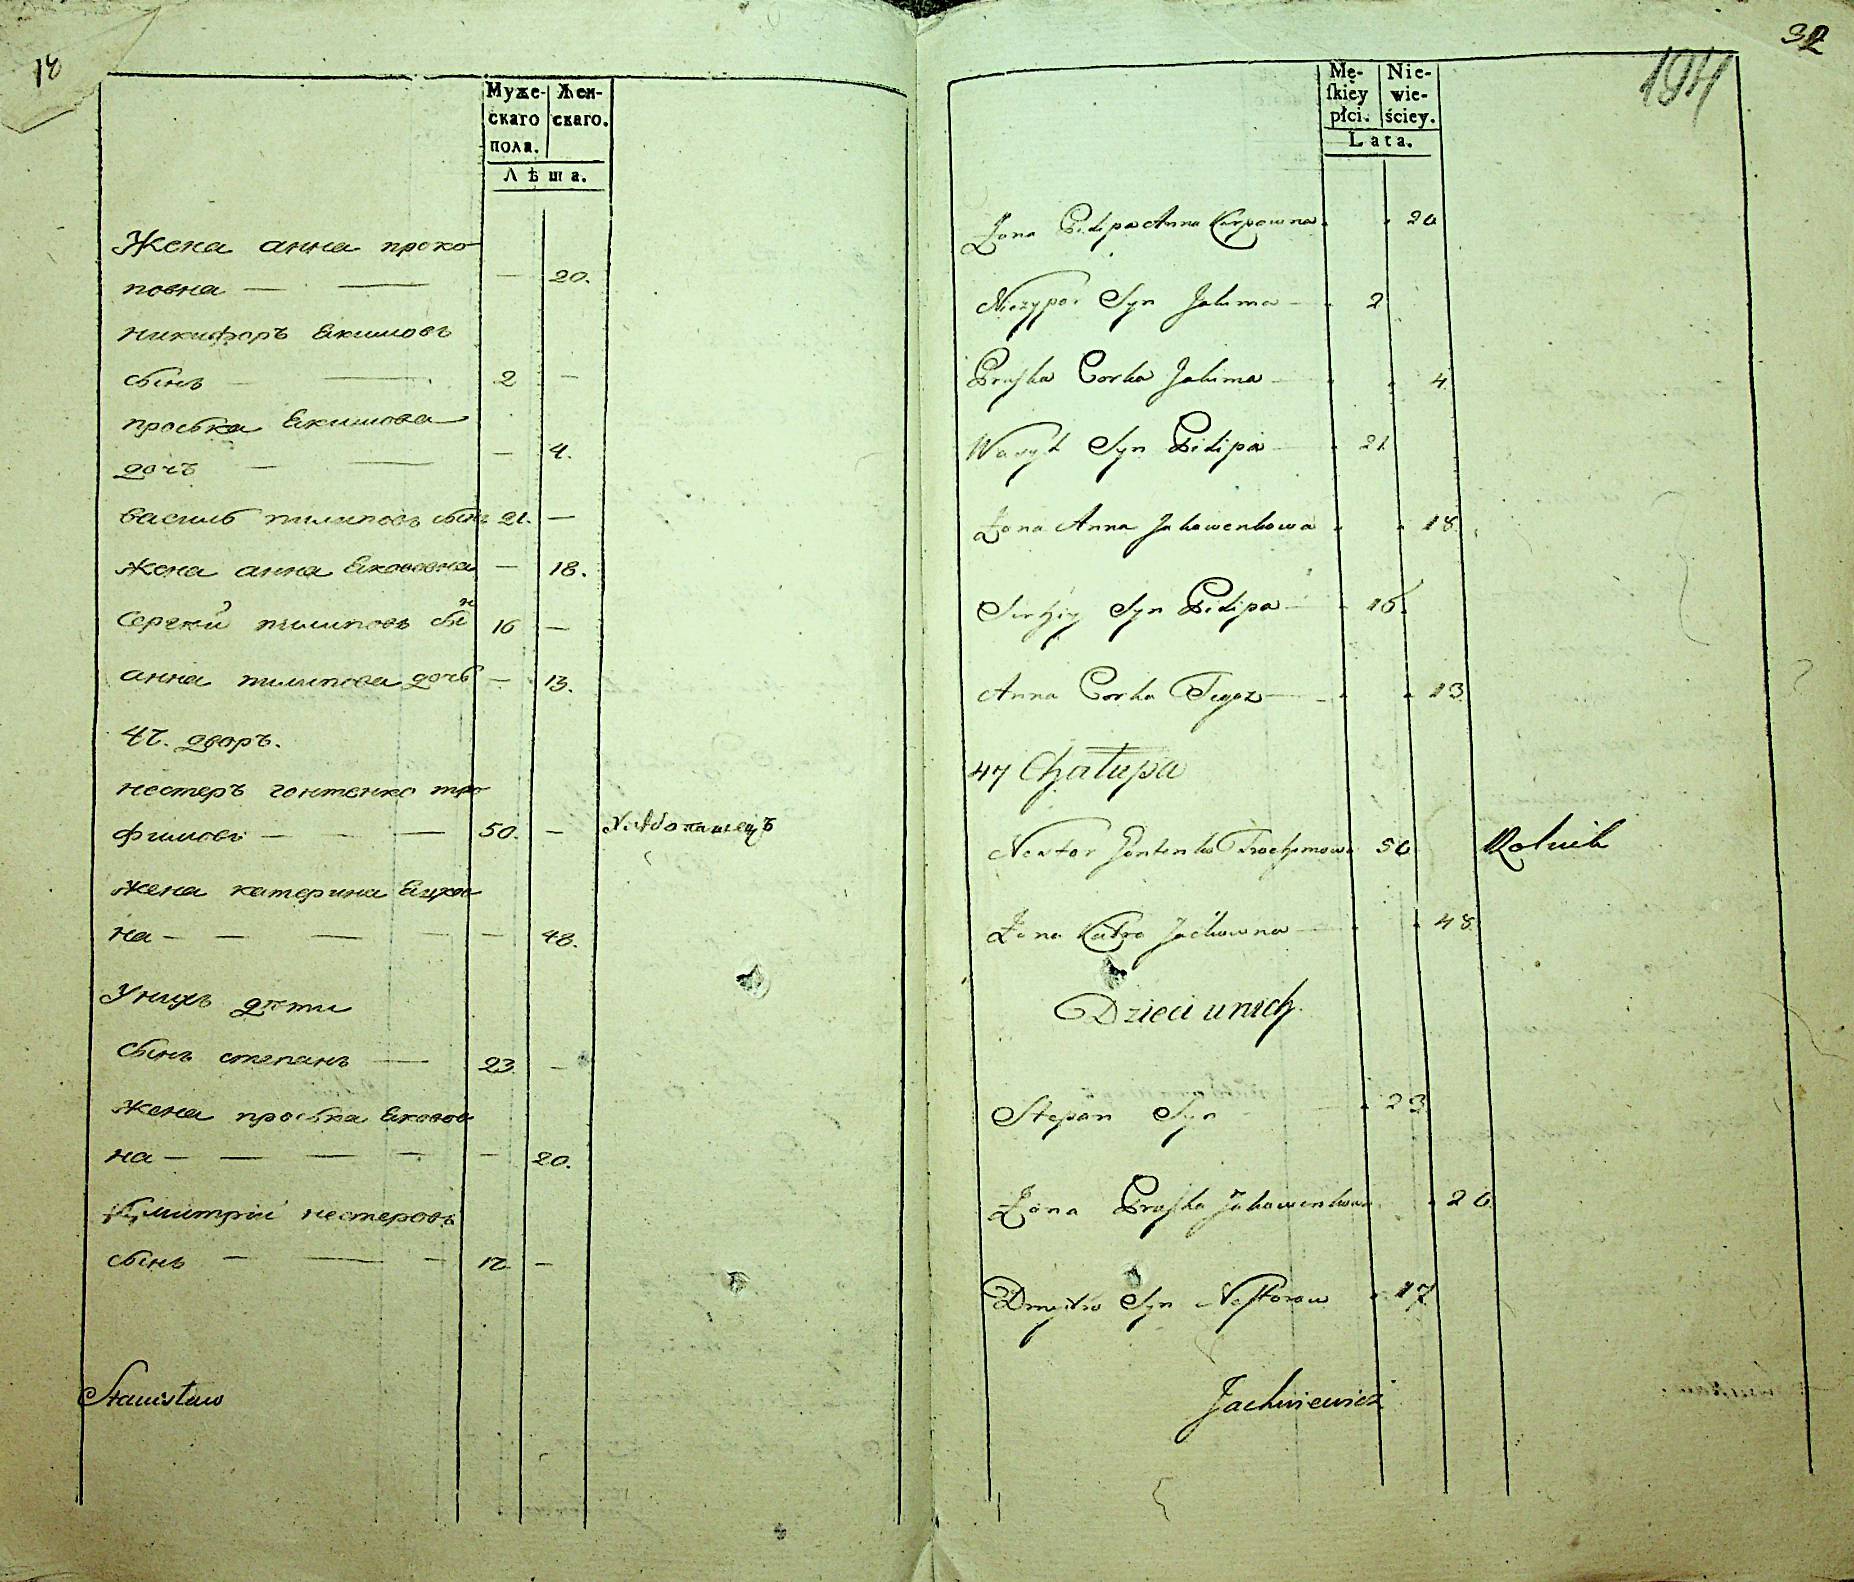 18
Муже-
скаго
пола.
Жен-
скаго.
Лѣта.
Жена анна проко
повна — — — 20.
никифоръ Екимовъ
сынъ — — 2 —
проська Екимова
дочъ — — — 4.
василь пилиповъ сынъ 21. —
жена анна Якововна — 18.
Сергий пилиповъ сы́н 16 —
анна пилипова дочь — 13.
47. дворъ.
нестеръ гонтенко тро
фимовъ — — — 50. —
жена катерина Яцков
на — — — — — 48.
У нихъ дѣти
сынъ степанъ — 23. —
жена проська Яковов
на — — — — — 20.
Дмитрій нестеровъ
сынъ — — — 17. —
Stanisław
32
194
Mę-
ſkiey
płci.
Nie-
wie-
ściey.
Lata.
Żona Pilipa Anna Karpowna 20
Niczypor Syn Jakima — 2
Pruſka Corka Jakima — 4.
Wasyl Syn Pilipa — 21.
Żona Anna Jakowenkowa 18.
Serhiy Syn Pilipa — 16.
Anna Corka Tegoz — 13.
47 Chałupa
Nestor Gontenko Trochimow 50 Rolnik
Żona Katra Jackowna — 48.
Dzieci u nich
Stepan Syn 23.
Żona Pruſka Jakowenkowa 20.
Dmytro Syn Neſtorow 17
Jachniewicz